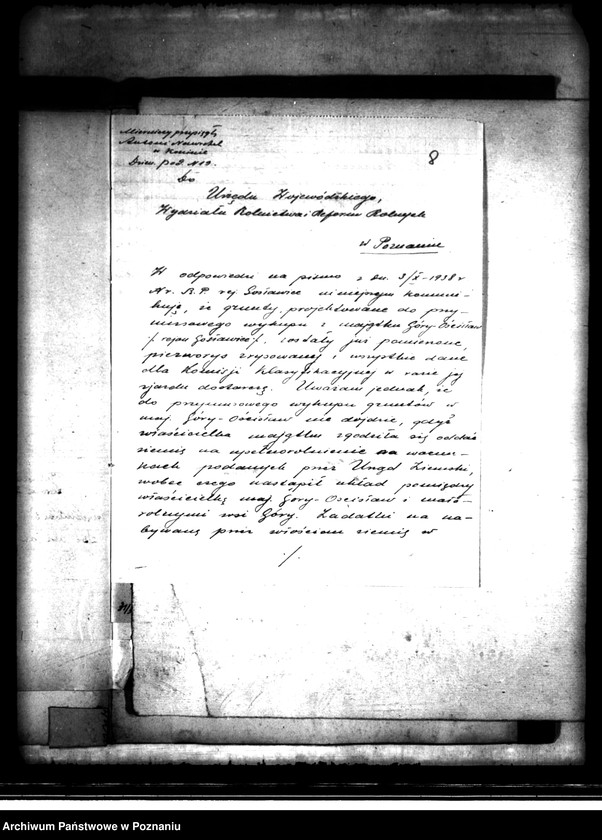 Mierniczy przysięgły
Antoni
w Koninie
Dnia
8
Do
Urzędu Wojewódzkiego,
Wydziału Rolnictwa i Reform Rolnych
w Poznaniu
W odpowiedzi na pismo z dn. 3/X-1938 r
Nr. R.P. rej Gosławice niniejszym komuni-
kuję, iż grunty projektowane do przy-
musowego wykupu z majątku Góry-Ościsław
/. rejon Gosławice /. zostały już pomierzone,
pierworys zrysowany i wszystkie dane
dla Komisji Klasyfikacyjnej w razie jej
zjazdu dostarczę. Uważam jednak, że
do przymusowego wykupu gruntów w
maj. Góry-Ościsław nie dojdzie, gdyż
właścicielka majątku zgodziła się oddać
ziemię na upełnorolnienie na warun-
kach podanych przez Urząd Ziemski,
wobec czego nastąpił układ pomiędzy
właścicielką maj. Góry-Ościsław i mało-
rolnymi wsi Góry. Zadatki na na-
bywaną przez włościan ziemię w
./.
Archiwum Państwowe w Poznaniu